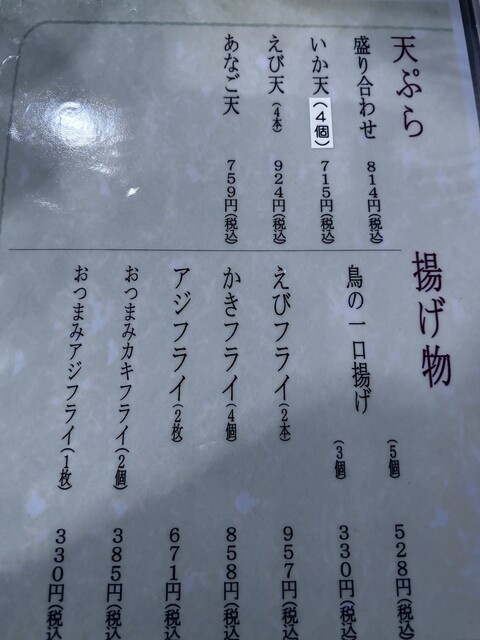 天ぷら
盛り合わせ 814円(税込)
いか天(4個) 715円(税込)
えび天(4本) 924円(税込)
あなご天 759円(税込)
揚げ物
鳥の一口揚げ
(5個) 528円(税込
(3個) 330円(税込
えびフライ(2本) 957円(税込
かきフライ(4個) 858円(税込
アジフライ(2枚) 671円(税込
おつまみカキフライ(2個) 385円(税込
おつまみアジフライ(1枚) 330円(税込